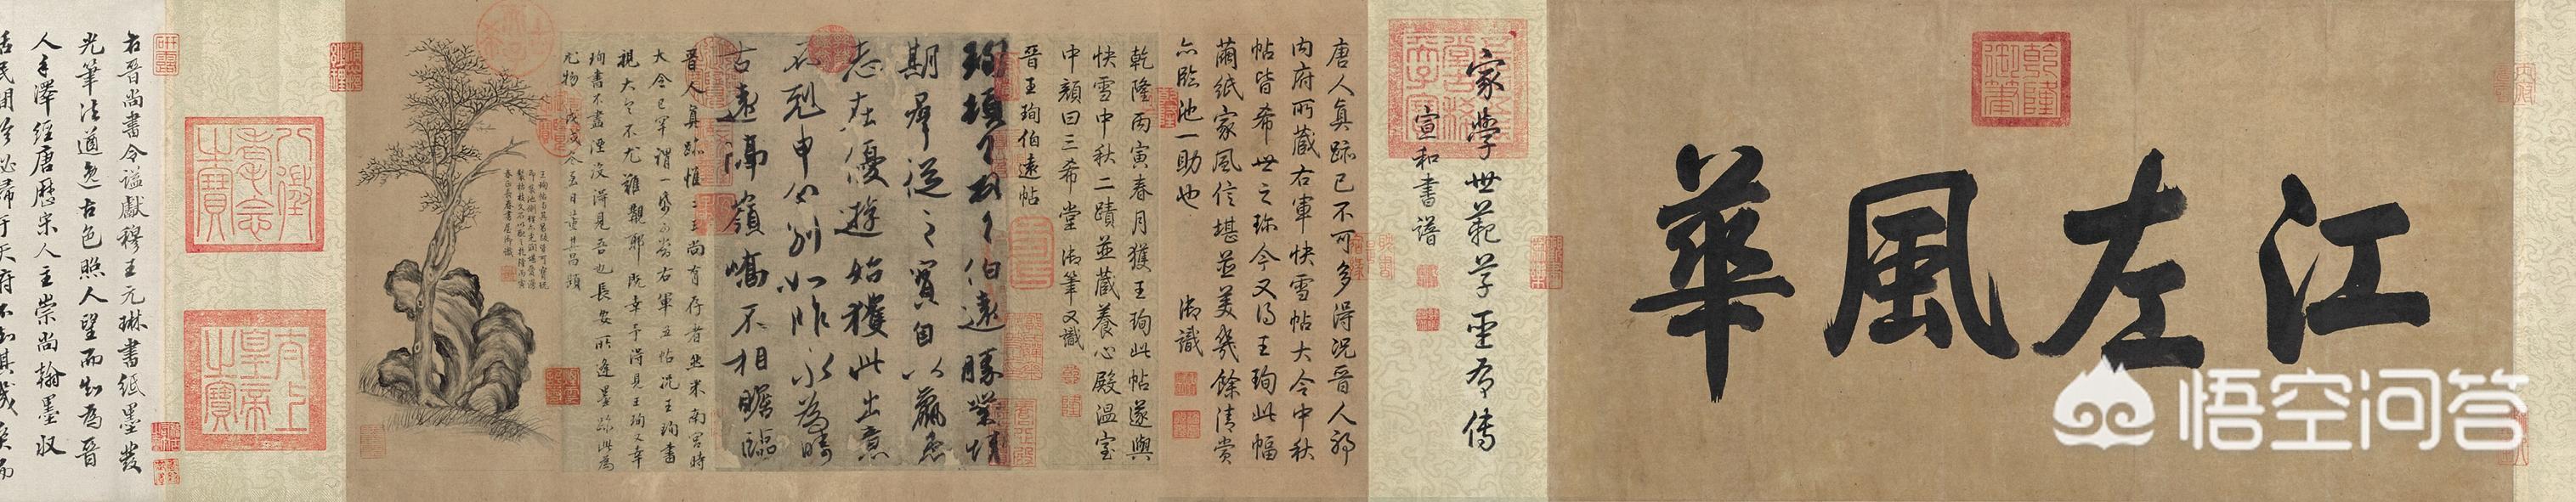 江左風華
乾隆御筆
家學世範草聖有傳
宣和書譜
唐人真跡已不可多得況晉人耶
内府所藏右軍快雪帖大令中秋
帖皆希世之珍今又得王珣此幅
繭紙家風信堪並美幾餘清賞
亦臨池一助也 御識
乾隆丙寅春月獲王珣此帖遂與
快雪中秋二蹟並藏養心殿溫室
中顏曰三希堂御筆又識
晉王珣伯遠帖
珣頓首頓首伯遠勝業情
期群從之寶自以羸患
志在優遊始獲此出意
不剋申分別如昨永為疇
古遠隔嶺嶠不相瞻臨
晉人真跡惟二王尚有存者然米南宮時
大令已罕謂一紙可當右軍五帖況王珣書
視大令不尤難覯耶既幸予得見王珣又幸
珣書不盡湮沒得見吾也長安所逢墨跡此為
尤物戊戌冬至日董其昌題
王珣帖與其昌跋皆可寶玩
即裝池側理亦光潤堪愛漫
製枯枝文石以配之乾隆丙寅
春正長春書屋御識
八徵耄念之寶
太上皇帝之寶
右晉尚書令謚獻穆王元琳書紙墨發
光筆法遒逸古色照人望而知為晉
人手澤經唐歷宋人主崇尚翰墨收
括民間珍必歸于天府不知其幾矣而